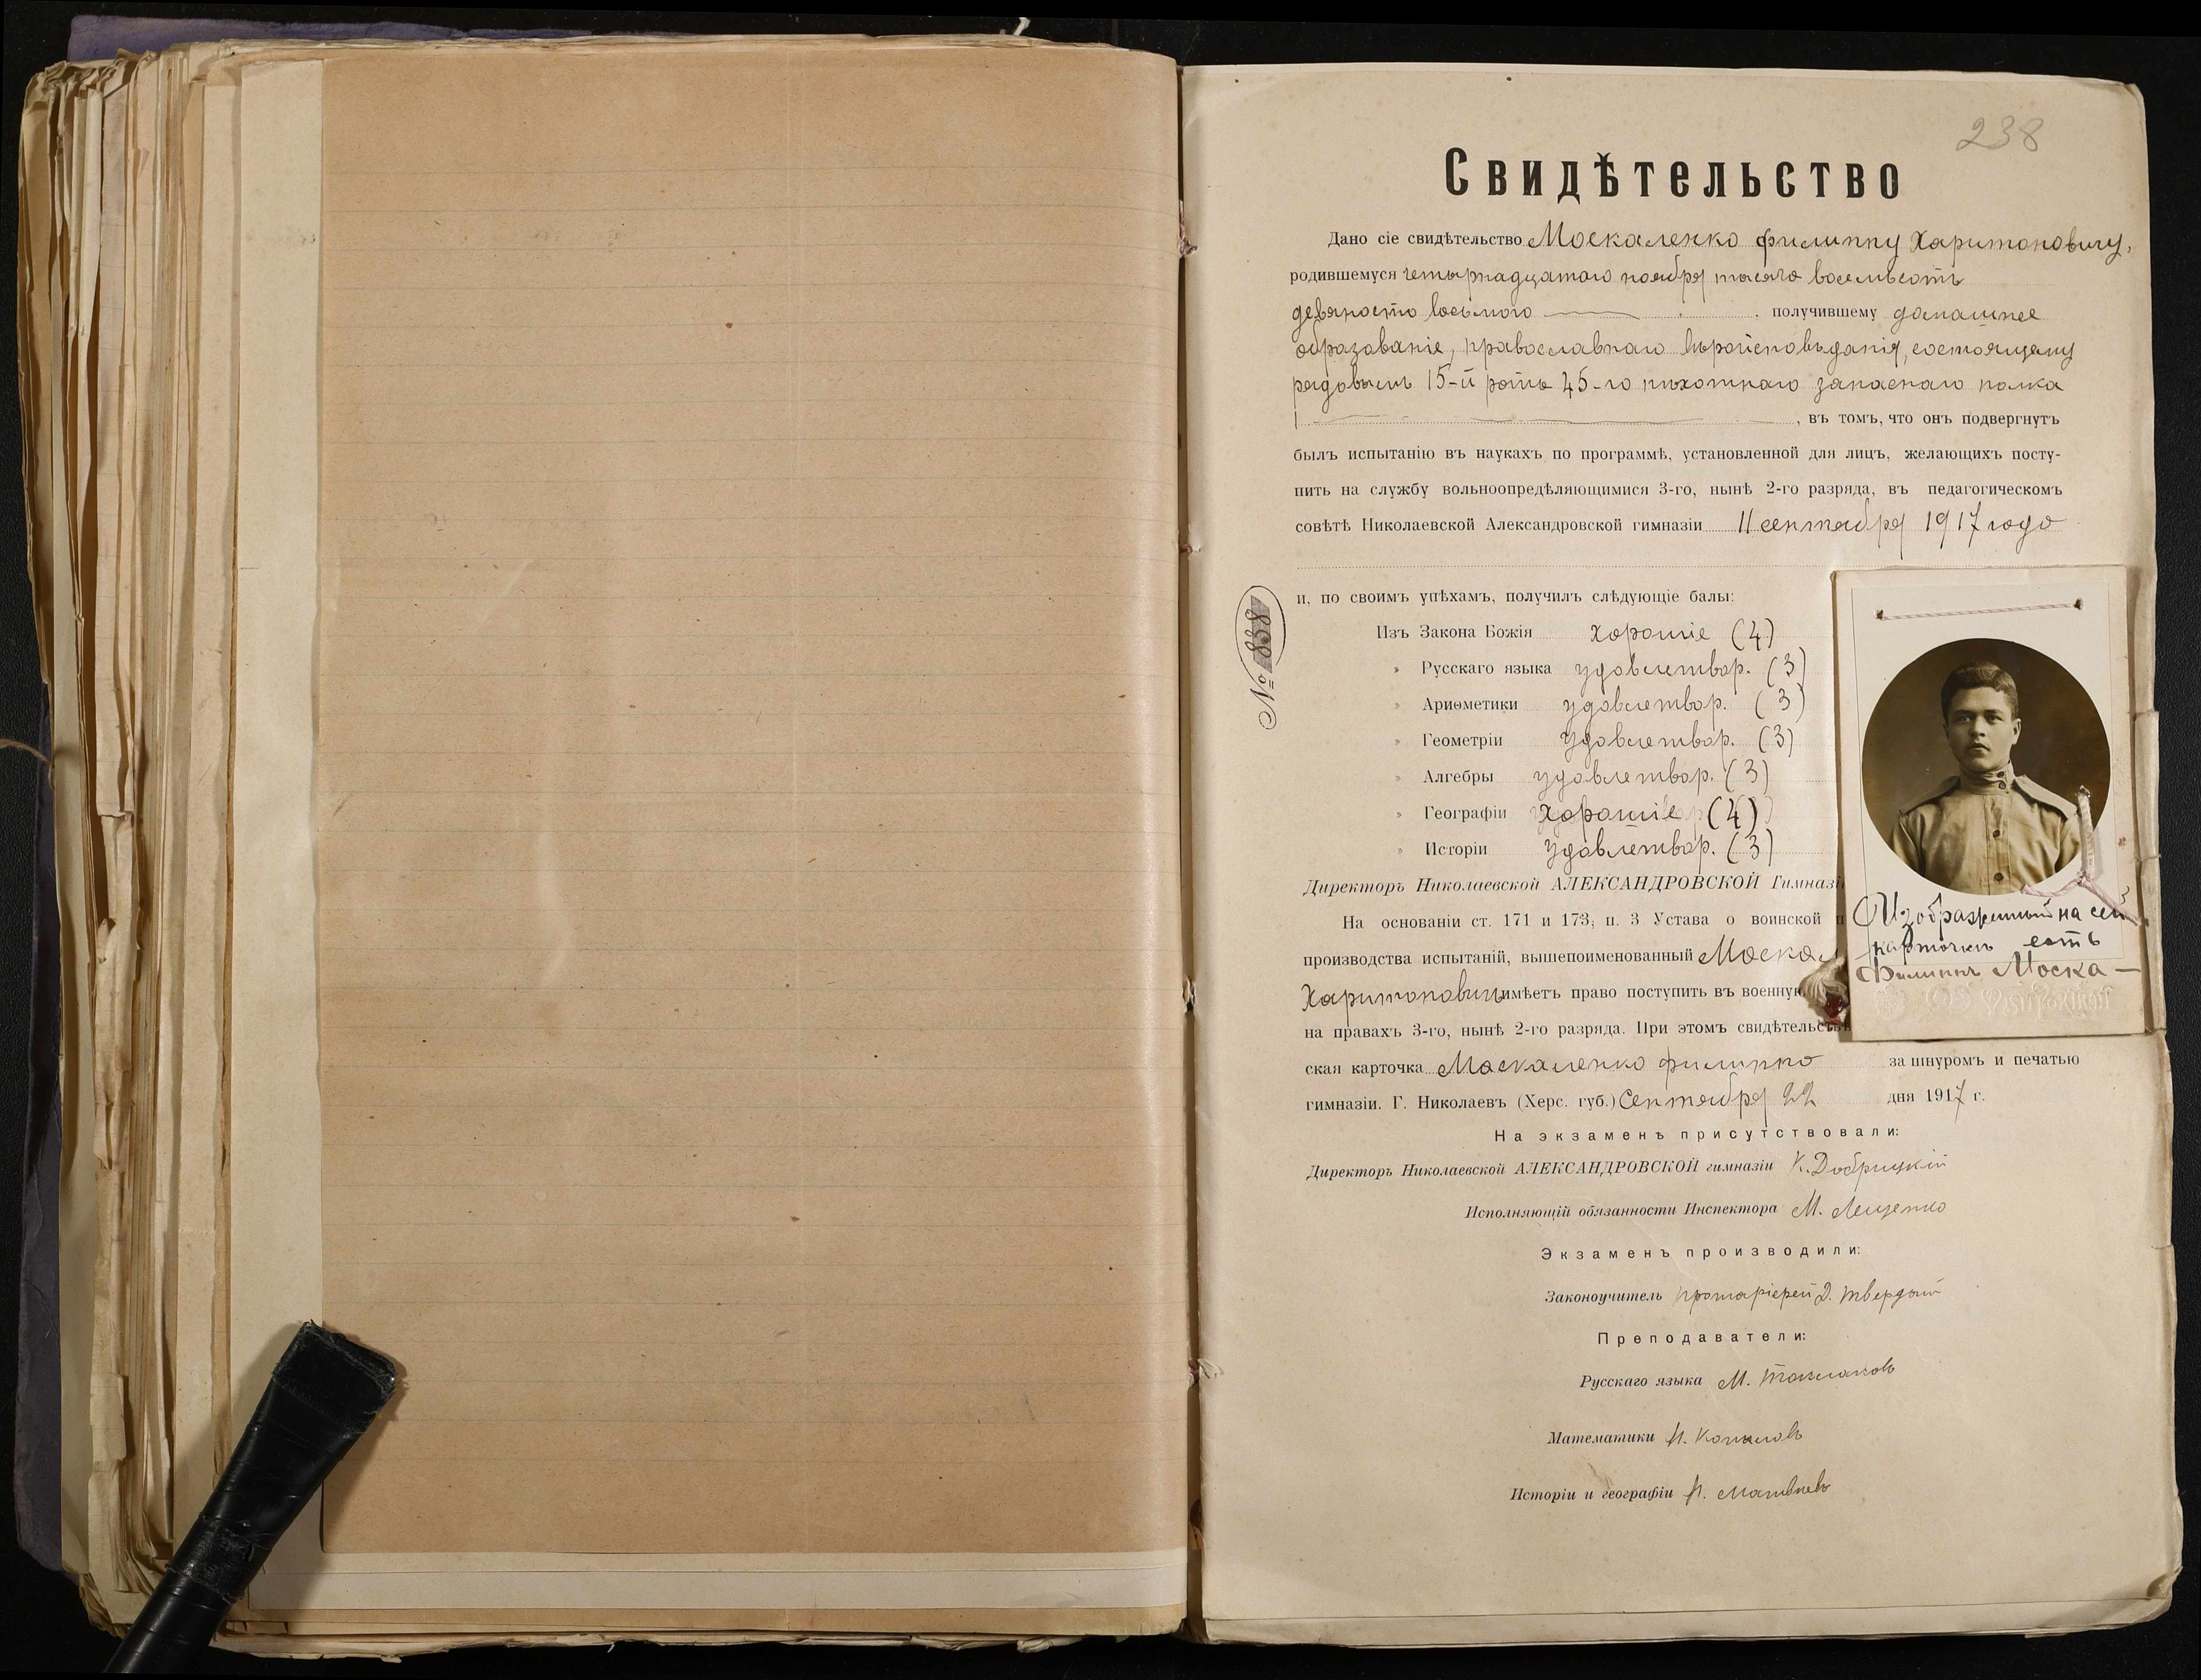 238
Свидѣтельство
Дано сіе свидѣтельство Москаленко Филиппу Харитоновичу,
родившемуся четырнадцатаго ноября тысяча восемьсотъ
девяносто восьмого получившему домашнее
образованіе, православнаго вѣроисповѣданія, состоящему
рядовымъ 15-й роты 45-го пѣхотнаго запаснаго полка
, въ томъ, что онъ подвергнутъ
былъ испытанію въ наукахъ по программѣ, установленной для лицъ, желающихъ посту-
пить на службу вольноопредѣляющимися 3-го, нынѣ 2-го разряда, въ педагогическомъ
совѣтѣ Николаевской Александровской гимназіи 11 сентября 1917 года
и, по своимъ успѣхамъ, получилъ слѣдующіе балы:
№ 838
Изъ Закона Божія хорошіе (4)
» Русскаго языка удовлетвор. (3)
» Ариѳметики удовлетвор. (3)
» Геометріи удовлетвор. (3)
» Алгебры удовлетвор. (3)
» Географіи хорошіе (4)
» Исторіи удовлетвор. (3)
Директоръ Николаевской АЛЕКСАНДРОВСКОЙ Гимназі
На основаніи ст. 171 и 173, п. 3 Устава о воинской п
производства испытаній, вышепоименованный Моска
Харитоновичъ имѣетъ право поступить въ военную
на правахъ 3-го, нынѣ 2-го разряда. При этомъ свидѣтельств
ская карточка Москаленко Филиппа за шнуромъ и печатью
гимназіи. Г. Николаевъ (Херс. губ.) Сентября 22 дня 1917 г.
Изображенный на сей
карточкѣ есть
Филиппъ Моска—
На экзаменѣ присутствовали:
Директоръ Николаевской АЛЕКСАНДРОВСКОЙ гимназіи К. Добрицкій
Исполняющій обязанности Инспектора М. Лещенко
Экзаменъ производили:
Законоучитель протоіерей Д. Твердый
Преподаватели:
Русскаго языка М.
Математики
Исторіи и географіи Матвѣевъ